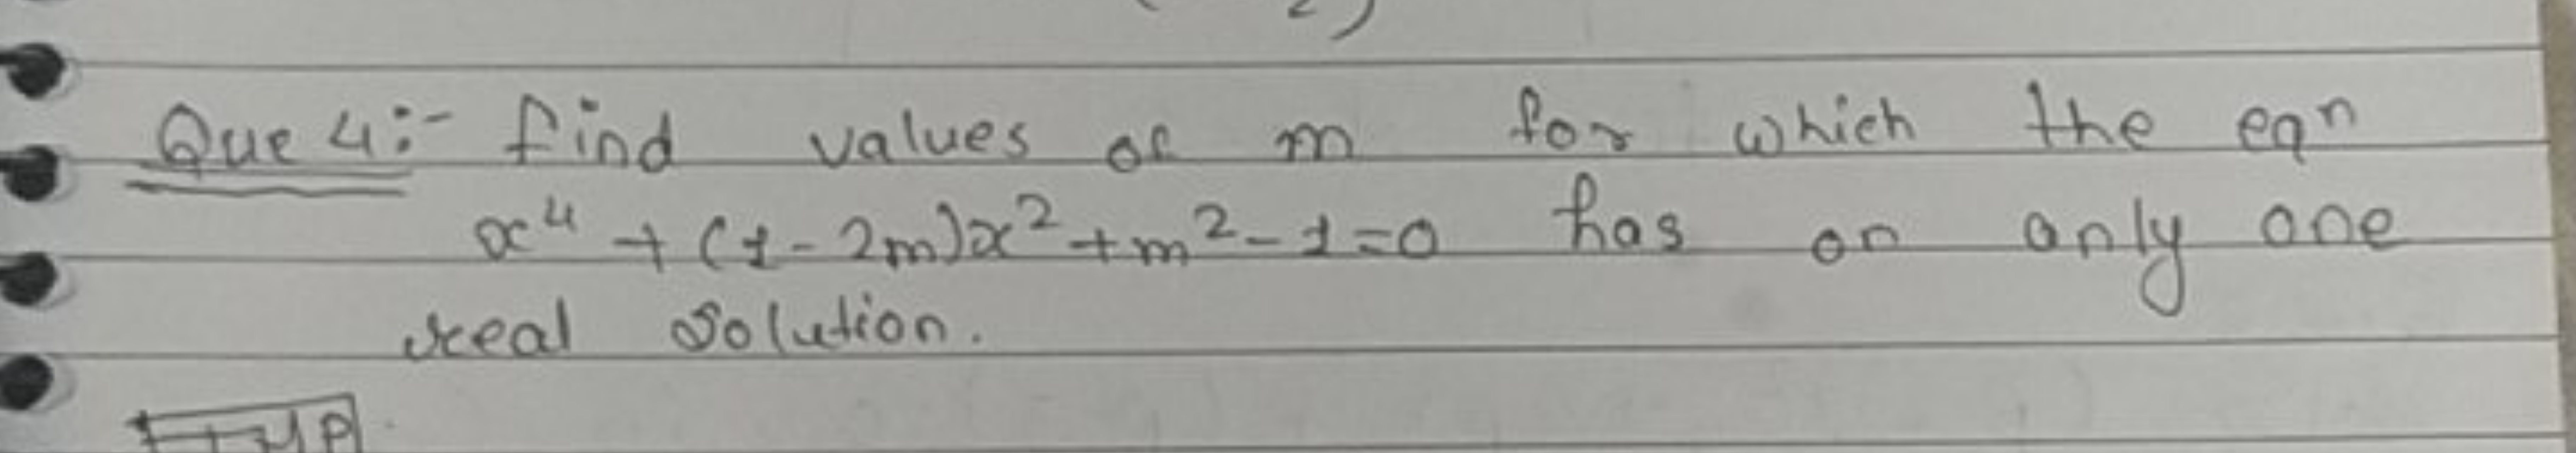 2)
Que 4:- find values of m for which the eqn
x⁴ + (1-2m)x² + m² - 1 = 0 has on only one
real solution.